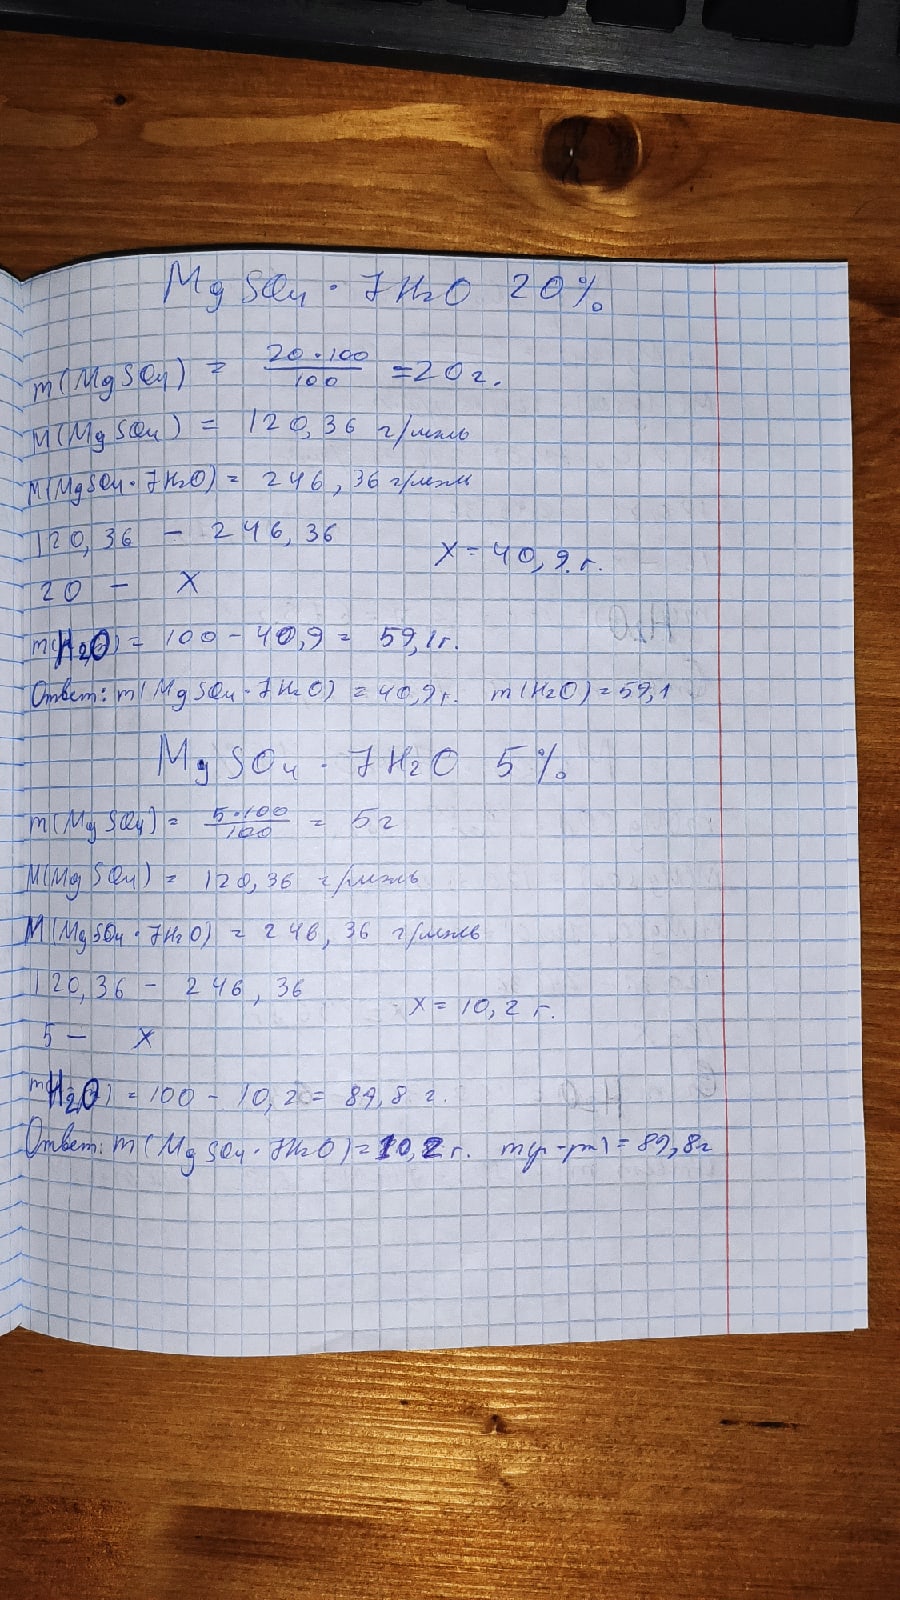 MgSO4 · 7H2O 20%
m(MgSO4) = 20·100/100 = 20 г.
M(MgSO4) = 120,36 г/моль
M(MgSO4·7H2O) = 246,36 г/моль
120,36 – 246,36
x = 40,9 г.
20 – x
m(H2O) = 100 – 40,9 = 59,1 г.
Ответ: m(MgSO4·7H2O) = 40,9 г. m(H2O) = 59,1
MgSO4 · 7H2O 5%
m(MgSO4) = 5·100/100 = 5 г
M(MgSO4) = 120,36 г/моль
M(MgSO4·7H2O) = 246,36 г/моль
120,36 – 246,36
x = 10,2 г.
5 – x
m(H2O) = 100 – 10,2 = 89,8 г.
Ответ: m(MgSO4·7H2O) = 10,2 г. m(р-ра) = 89,8г